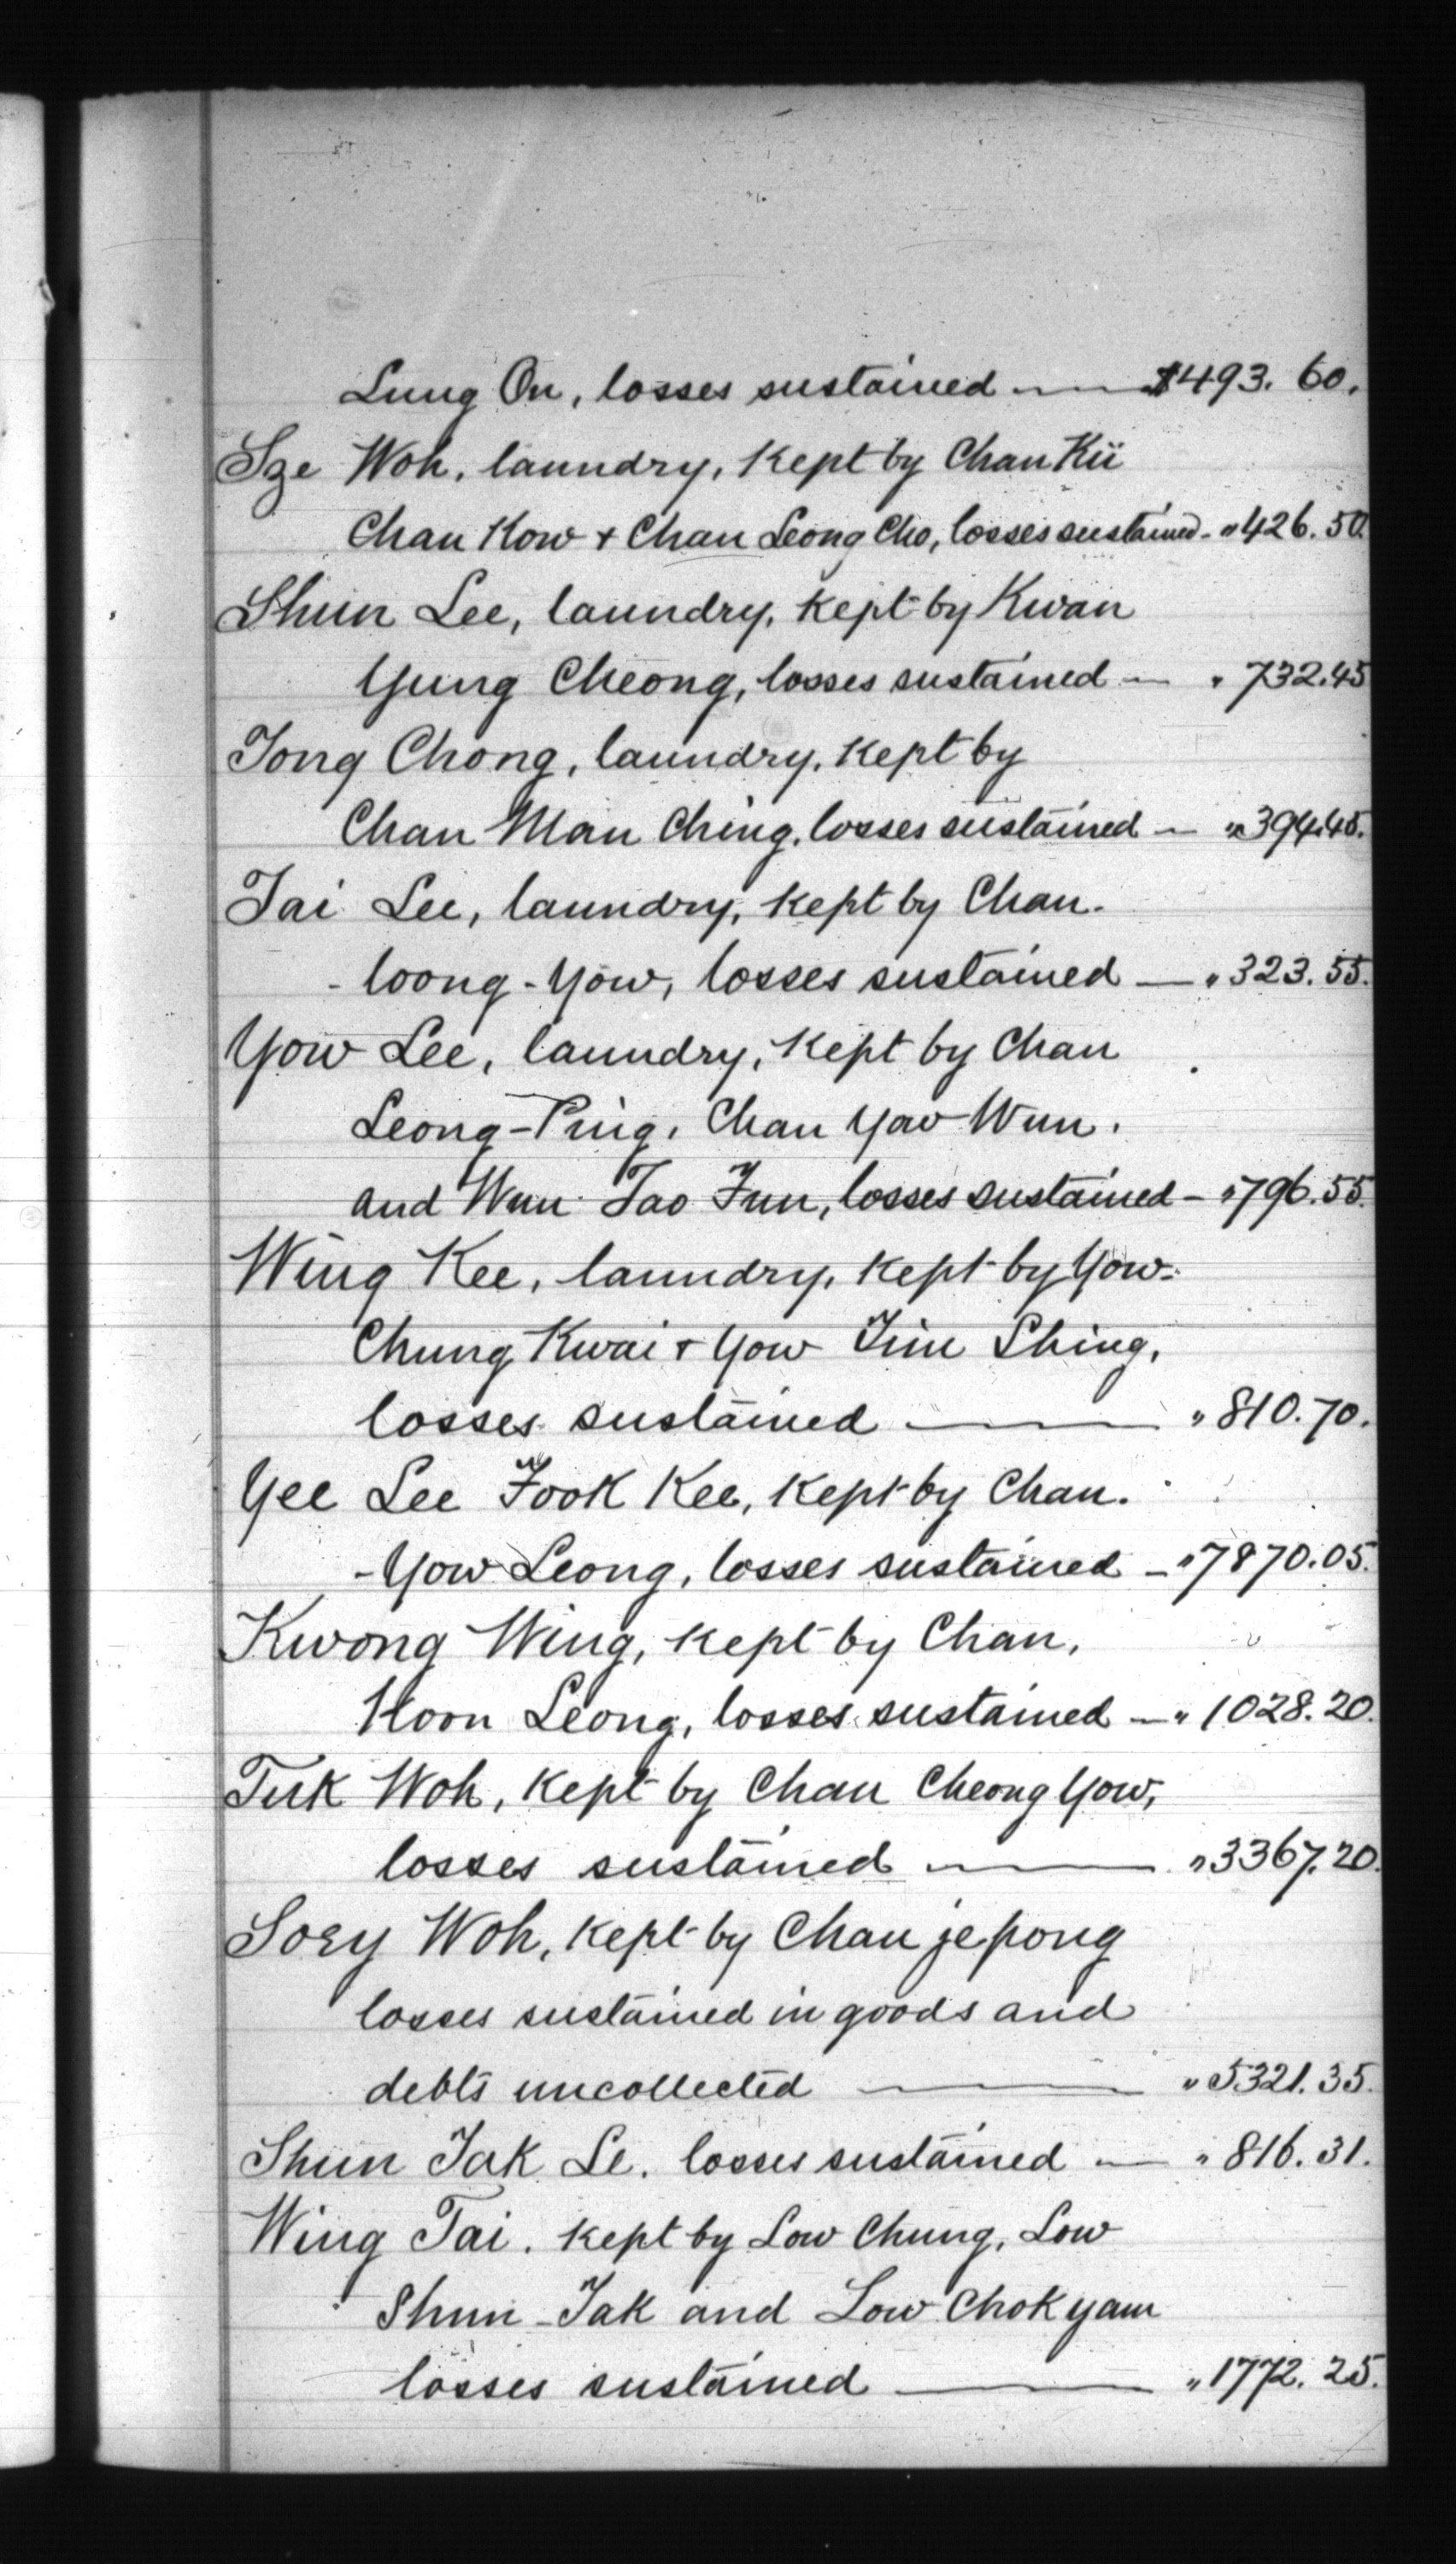 Lung On, losses sustained — $493. 60.
Sze Woh, laundry, Kept by Chan Kii
Chan Kow + Chan Leong Cho, losses sustained - " 426. 50.
Shun Lee, laundry, Kept by Kwan
Yung Cheong, losses sustained — " 732.45
Tong Chong, laundry, Kept by
Chan Man Ching, losses sustained — " 394.45.
Tai Lee, laundry, Kept by Chan.
- loong - Yow, losses sustained — " 323. 55.
Yow Lee, laundry, Kept by Chan
Leong - Ping, Chan Yao Wun.
and Wun Tao Fun, losses sustained - " 796. 55.
Wing Kee, laundry, Kept by Yow-
Chung Kwai + Yow Tim Shing,
losses sustained — " 810. 70.
Yee Lee Fook Kee, Kept by Chan.
- Yow Leong, losses sustained - " 7870.05.
Kwong Wing, Kept by Chan,
Koon Leong, losses sustained — " 1028. 20.
Tuk Woh, Kept by Chan Cheong Yow,
losses sustained — " 3367. 20.
Soey Woh, Kept by Chan je pong
losses sustained in goods and
debts uncollected — " 5321. 35.
Shun Tak Le, losses sustained — " 816. 31.
Wing Tai, Kept by Low Chung, Low
Shun - Tak and Low Chok yam
losses sustained — " 1772. 25.